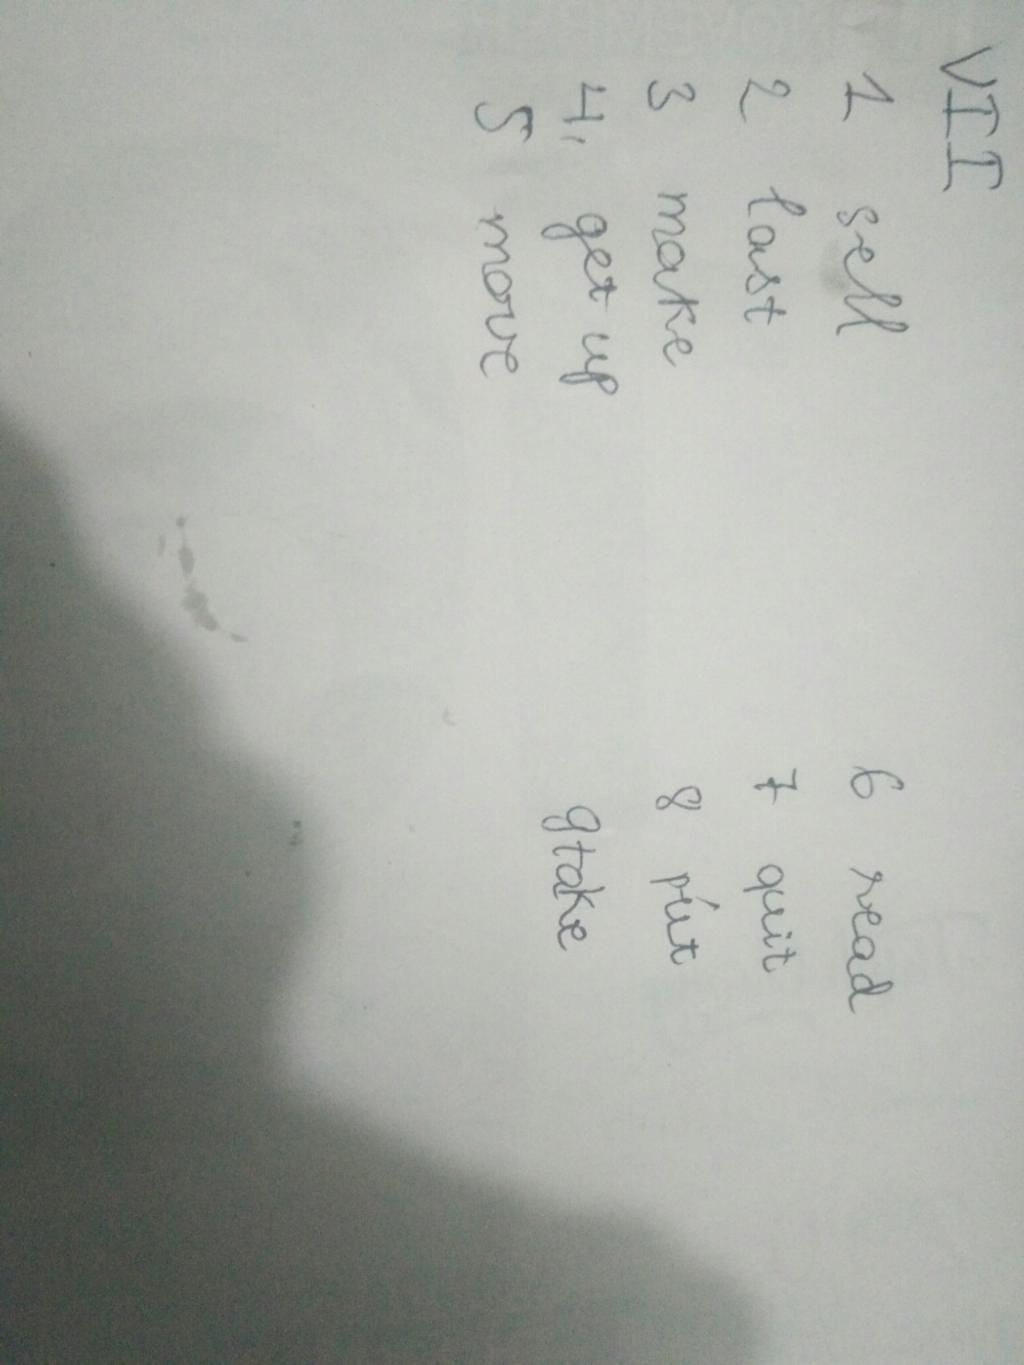 VII
1 sell
2 last
3 make
4. get up
5 move
6 read
7 quit
8 put
9 take